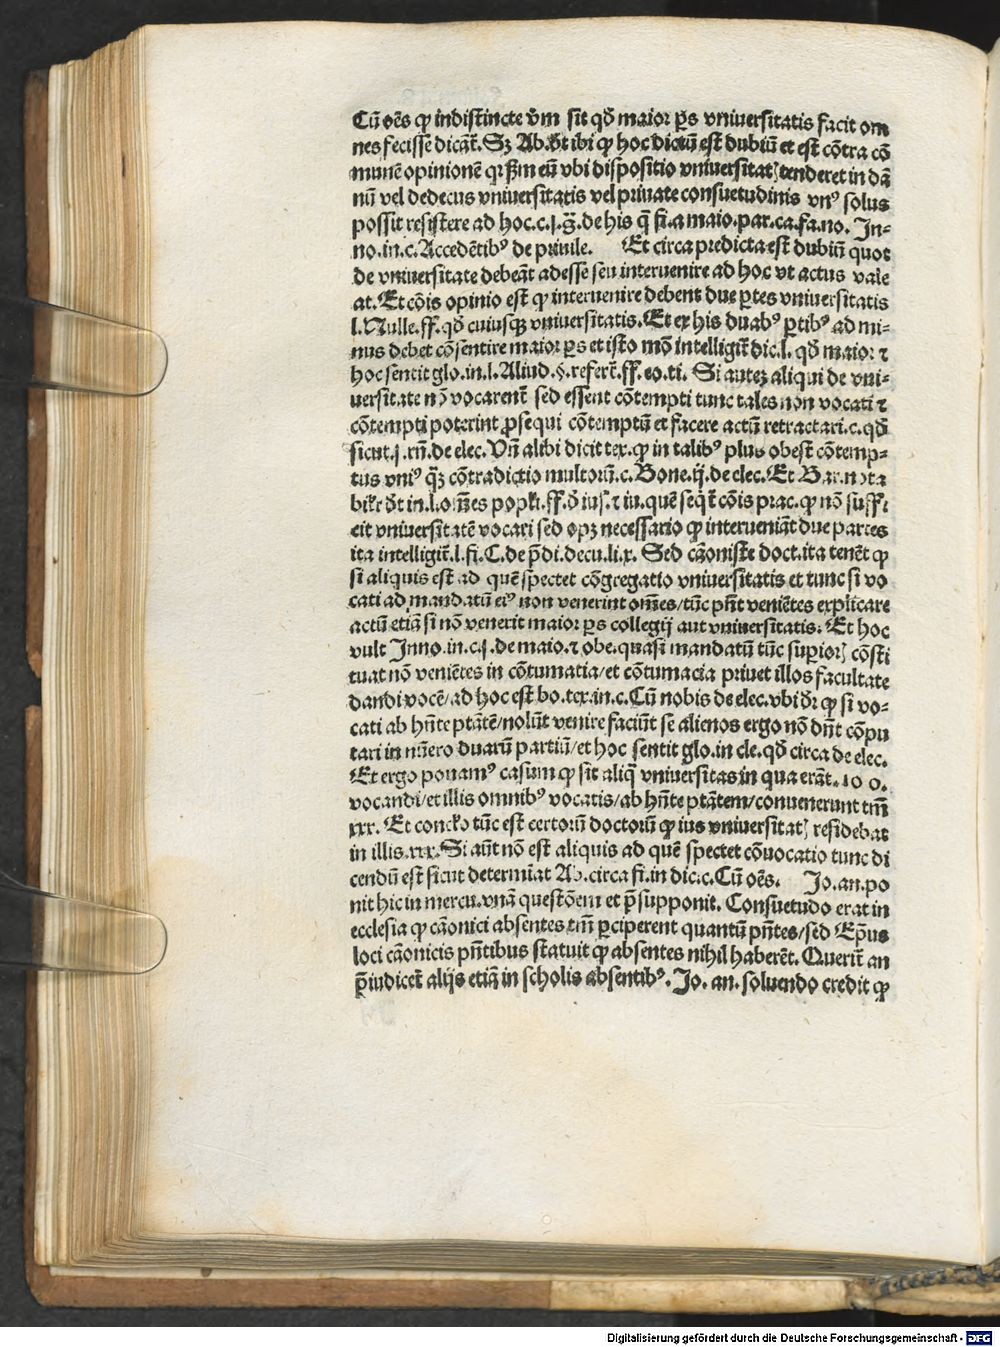 Cū oēs ꝙ indistincte v̄m sit qḋ maior ꝑs vniuersitatis facit om
nes fecisse dicāt̄. Sꝫ Ab. d̄t ibi ꝙ hoc dictū est dubiū et est cōtra cō
munē opinionē qꝛ ẜm eū vbi dispositio vniuersitatꝭ tenderet in dā
nū vel dedecus vniuersitatis vel priuate consuetudinis vnꝰ solus
possit resistere ad hoc .c.j.§. de his q̄ fi. a maio. par. ca. fa. no. In-
no. in. c. Accedētibꝰ de priuile. Et circa predicta est dubiū quot
de vniuersitate debeāt adesse seu interuenire ad hoc vt actus vale
at. Et cōis opinio est ꝙ interuenire debent due ꝑtes vniuersitatis
l. Nulle. ff. qḋ cuiusqꝫ vniuersitatis. Et ex his duabꝰ ꝑtibꝰ ad mi-
nus debet cōsentire maior ꝑs et isto mō intelligit̄ dic. l. qḋ maior ⁊
hoc sentit glo. in. l. Aliud. §. refert̄. ff. eo. ti. Si auteꝫ aliqui de vni-
uersitate nō vocarent̄ sed essent cōtempti tunc tales non vocati ⁊
cōtempti poterint ꝓsequi cōtemptū et facere actū retractari .c. qḋ
sicut. j. rn̄. de elec. Vn̄ alibi dicit tex. ꝙ in talibꝰ plus obest cōtemp-
tus vniꝰ q̄ꝫ cōtradictio multorū .c. Bone. ij. de elec. Et Bar. nota
bilr̄ d̄t in. l. om̄es popl̄i. ff. d̄ iusͭ. ⁊ iu. quē seqt̄ cōis prac. ꝙ nō suffi
cit vniuersitatē vocari sed opꝫ necessario ꝙ interueniāt due partes
ita intelligit̄. l. fi. C. de p̄di. decu. li. x. Sed canoniste doct. ita tenēt ꝙ
si aliquis est ad quē spectet cōgregatio vniuersitatis et tunc si vo
cati ad mandatū eiꝰ non venerint om̄es / tūc pn̄t veniētes explicare
actū etiā si nō venerit maior ꝑs collegij aut vniuersitatis. Et hoc
vult Inno. in. c. j. de maio. ⁊ obe. quasi mandatū tūc suꝑiorꝭ cōsti
tuat nō veniētes in cōtumatia / et cōtumacia priuet illos facultate
dandi vocē / ad hoc est bo. tex. in. c. Cū nobis de elec. vbi dr̄ ꝙ si vo-
cati ab hn̄te ptātē / nolūt venire faciūt se alienos ergo nō dn̄t cōpu
tari in nūero duarū partiū / et hoc sentit glo. in cle. qḋ circa de elec.
Et ergo ponamꝰ casum ꝙ sit aliq̄ vniuersitas in qua erāt .100.
vocandi / et illis omnibꝰ vocatis / ab hn̄te ptātem / conuenerunt tm̄
xxx. Et conclo tūc est certorū doctorū ꝙ ius vniuersitatꝭ residebat
in illis .xxx. Si aūt nō est aliquis ad quē spectet cōuocatio tunc di
cendū est sicut determīat Ab. circa fi. in dic. c. Cū oēs. Jo. an. po
nit hic in mercu. vnā questōem et p̄supponit. Consuetudo erat in
ecclesia ꝙ cāonici absentes tm̄ ꝑciperent quantū pn̄tes / sed Ep̄us
loci cāonicis pn̄tibus statuit ꝙ absentes nihil haberēt. Querit̄ an
p̄iudicet̄ alijs etiā in scholis absentibꝰ. Jo. an. soluendo credit ꝙ
Digitalisierung gefördert durch die Deutsche Forschungsgemeinschaft - DFG